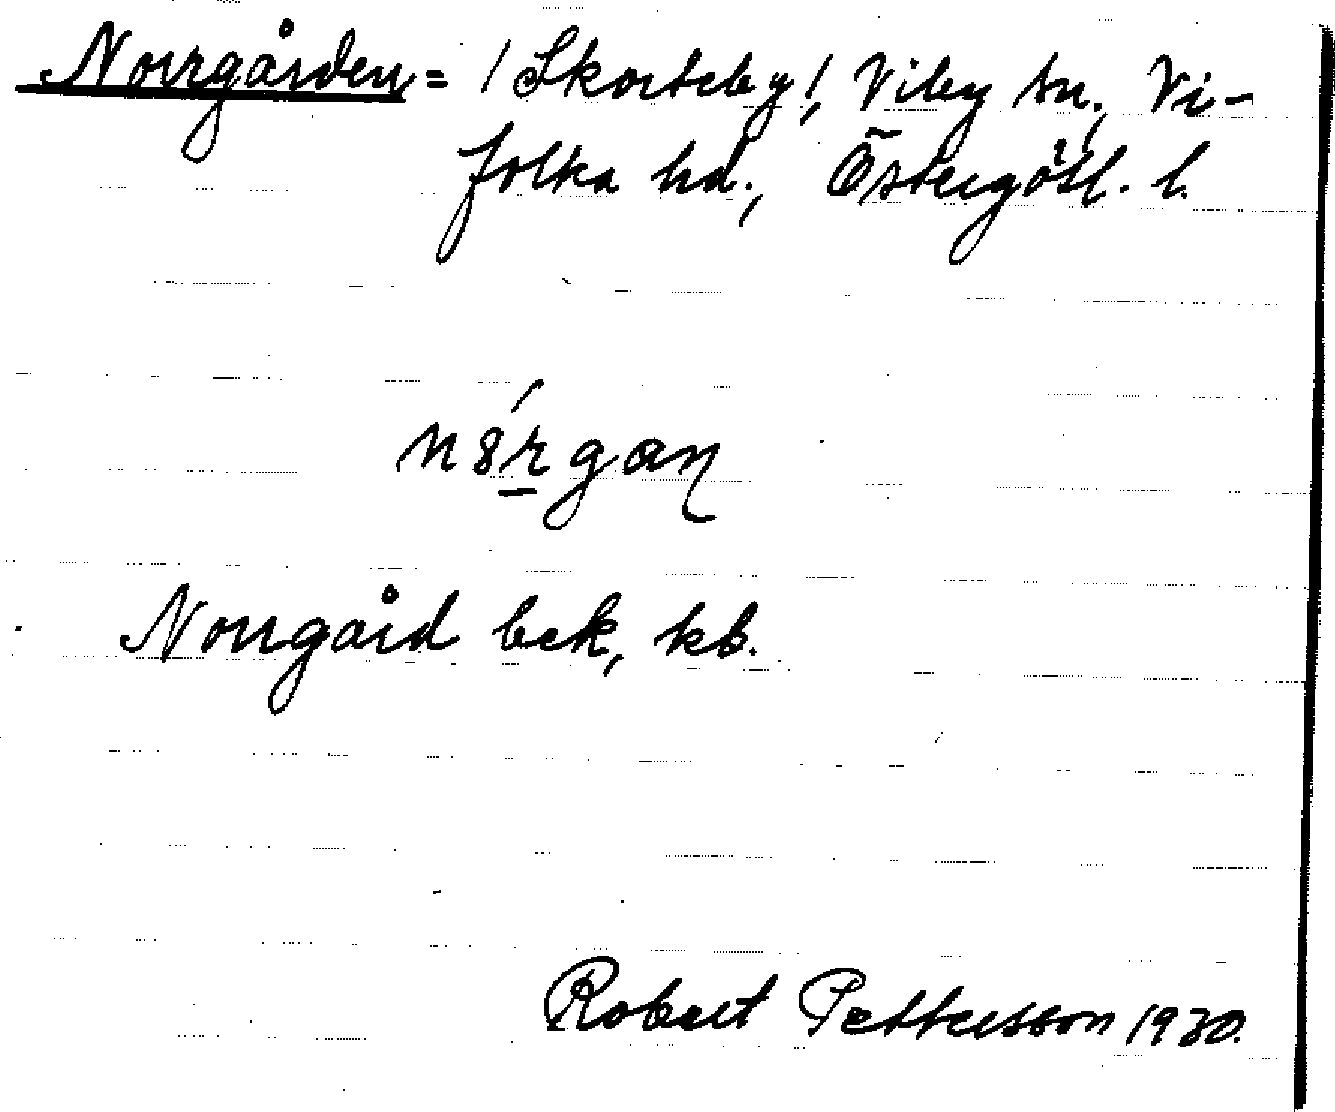 Norrgården = / Skorteby /, Viby sn, Vi-
folka hd., Östergötl. l.
Norrgård bek, kb.
Robert Pettersson 1930.